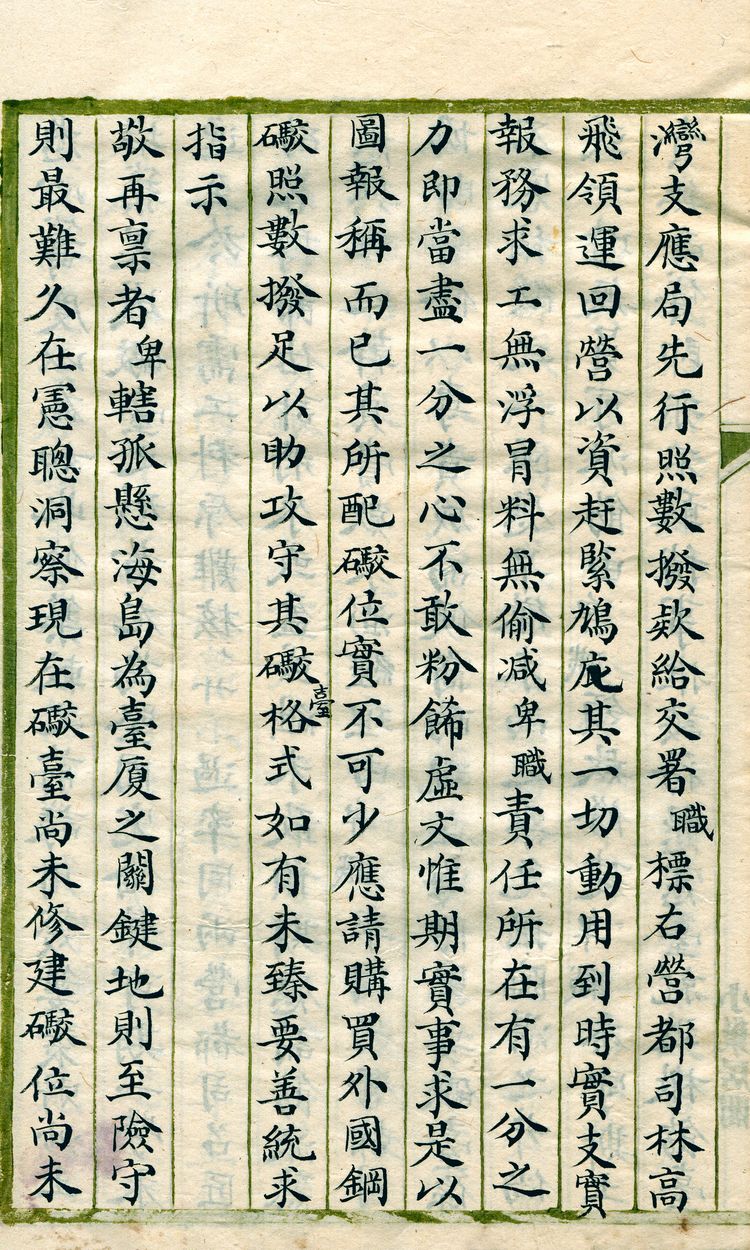 灣支應局先行照數撥欵給交署職標右營都司林高
飛領運回營以資赶緊鳩庇其一切動用到時實支實
報務求工無浮冒料無偷减卑職責任所在有一分之
力即當盡一分之心不敢粉餙虛文惟期實事求是以
圖報稱而已其所配礮位實不可少應請購買外國鋼
礮照數撥足以助攻守其礮臺格式如有未臻要善統求
指示
敬再禀者卑轄孤懸海島為臺厦之關鍵地則至險守
則最難久在憲聰洞察現在礮臺尚未修建礮位尚未